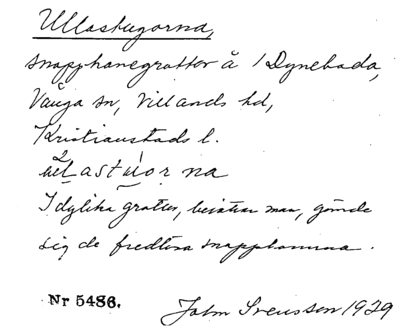 Ullastugorna,
snapphanegrottor å 1 Dyneboda,
Vånga sn, Villands hd,
Kristianstads l.
astuor na
I dylika grottor, berättar man, gömde
sig de fredlösa snapphanarna.
Nr 5486.
John Svensson 1929